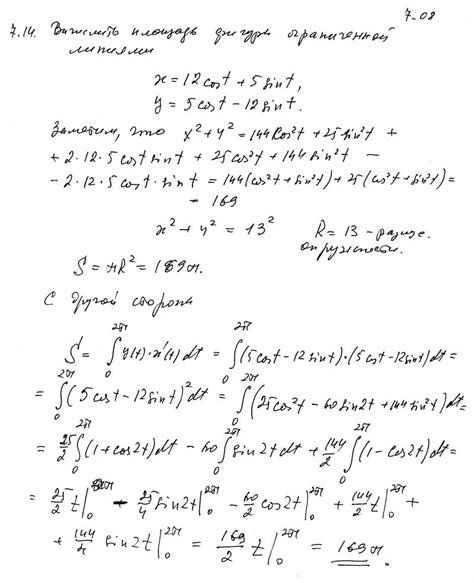 7-08
7.14. Вычислить площадь фигуры ограниченной
линиями
x = 12cost + 5sint,
y = 5cost - 12sint.
Заметим, что x² + y² = 144cos²t + 25sin²t +
+ 2·12·5 cost sint + 25cos²t + 144sin²t -
- 2·12·5 cost·sint = 144(cos²t + sin²t) + 25(cos²t + sin²t) =
= 169
x² + y² = 13² R = 13 - радиус
окружности.
S = πR² = 169π.
С другой стороны
S = ∫₀^{2π} y(t)·x'(t)dt = ∫₀^{2π} (5cost - 12sint)·(5cost - 12sint)dt =
= ∫₀^{2π} (5cost - 12sint)²dt = ∫₀^{2π} (25cos²t - 60sin2t + 144sin²t)dt =
= 25/2 ∫₀^{2π} (1 + cos2t)dt - 60 ∫₀^{2π} sin2t dt + 144/2 ∫₀^{2π} (1 - cos2t)dt =
= 25/2 t|₀^{2π} - 25/4 sin2t|₀^{2π} - 60/2 cos2t|₀^{2π} + 144/2 t|₀^{2π} +
+ 144/4 sin2t|₀^{2π} = 169/2 t|₀^{2π} = 169π.